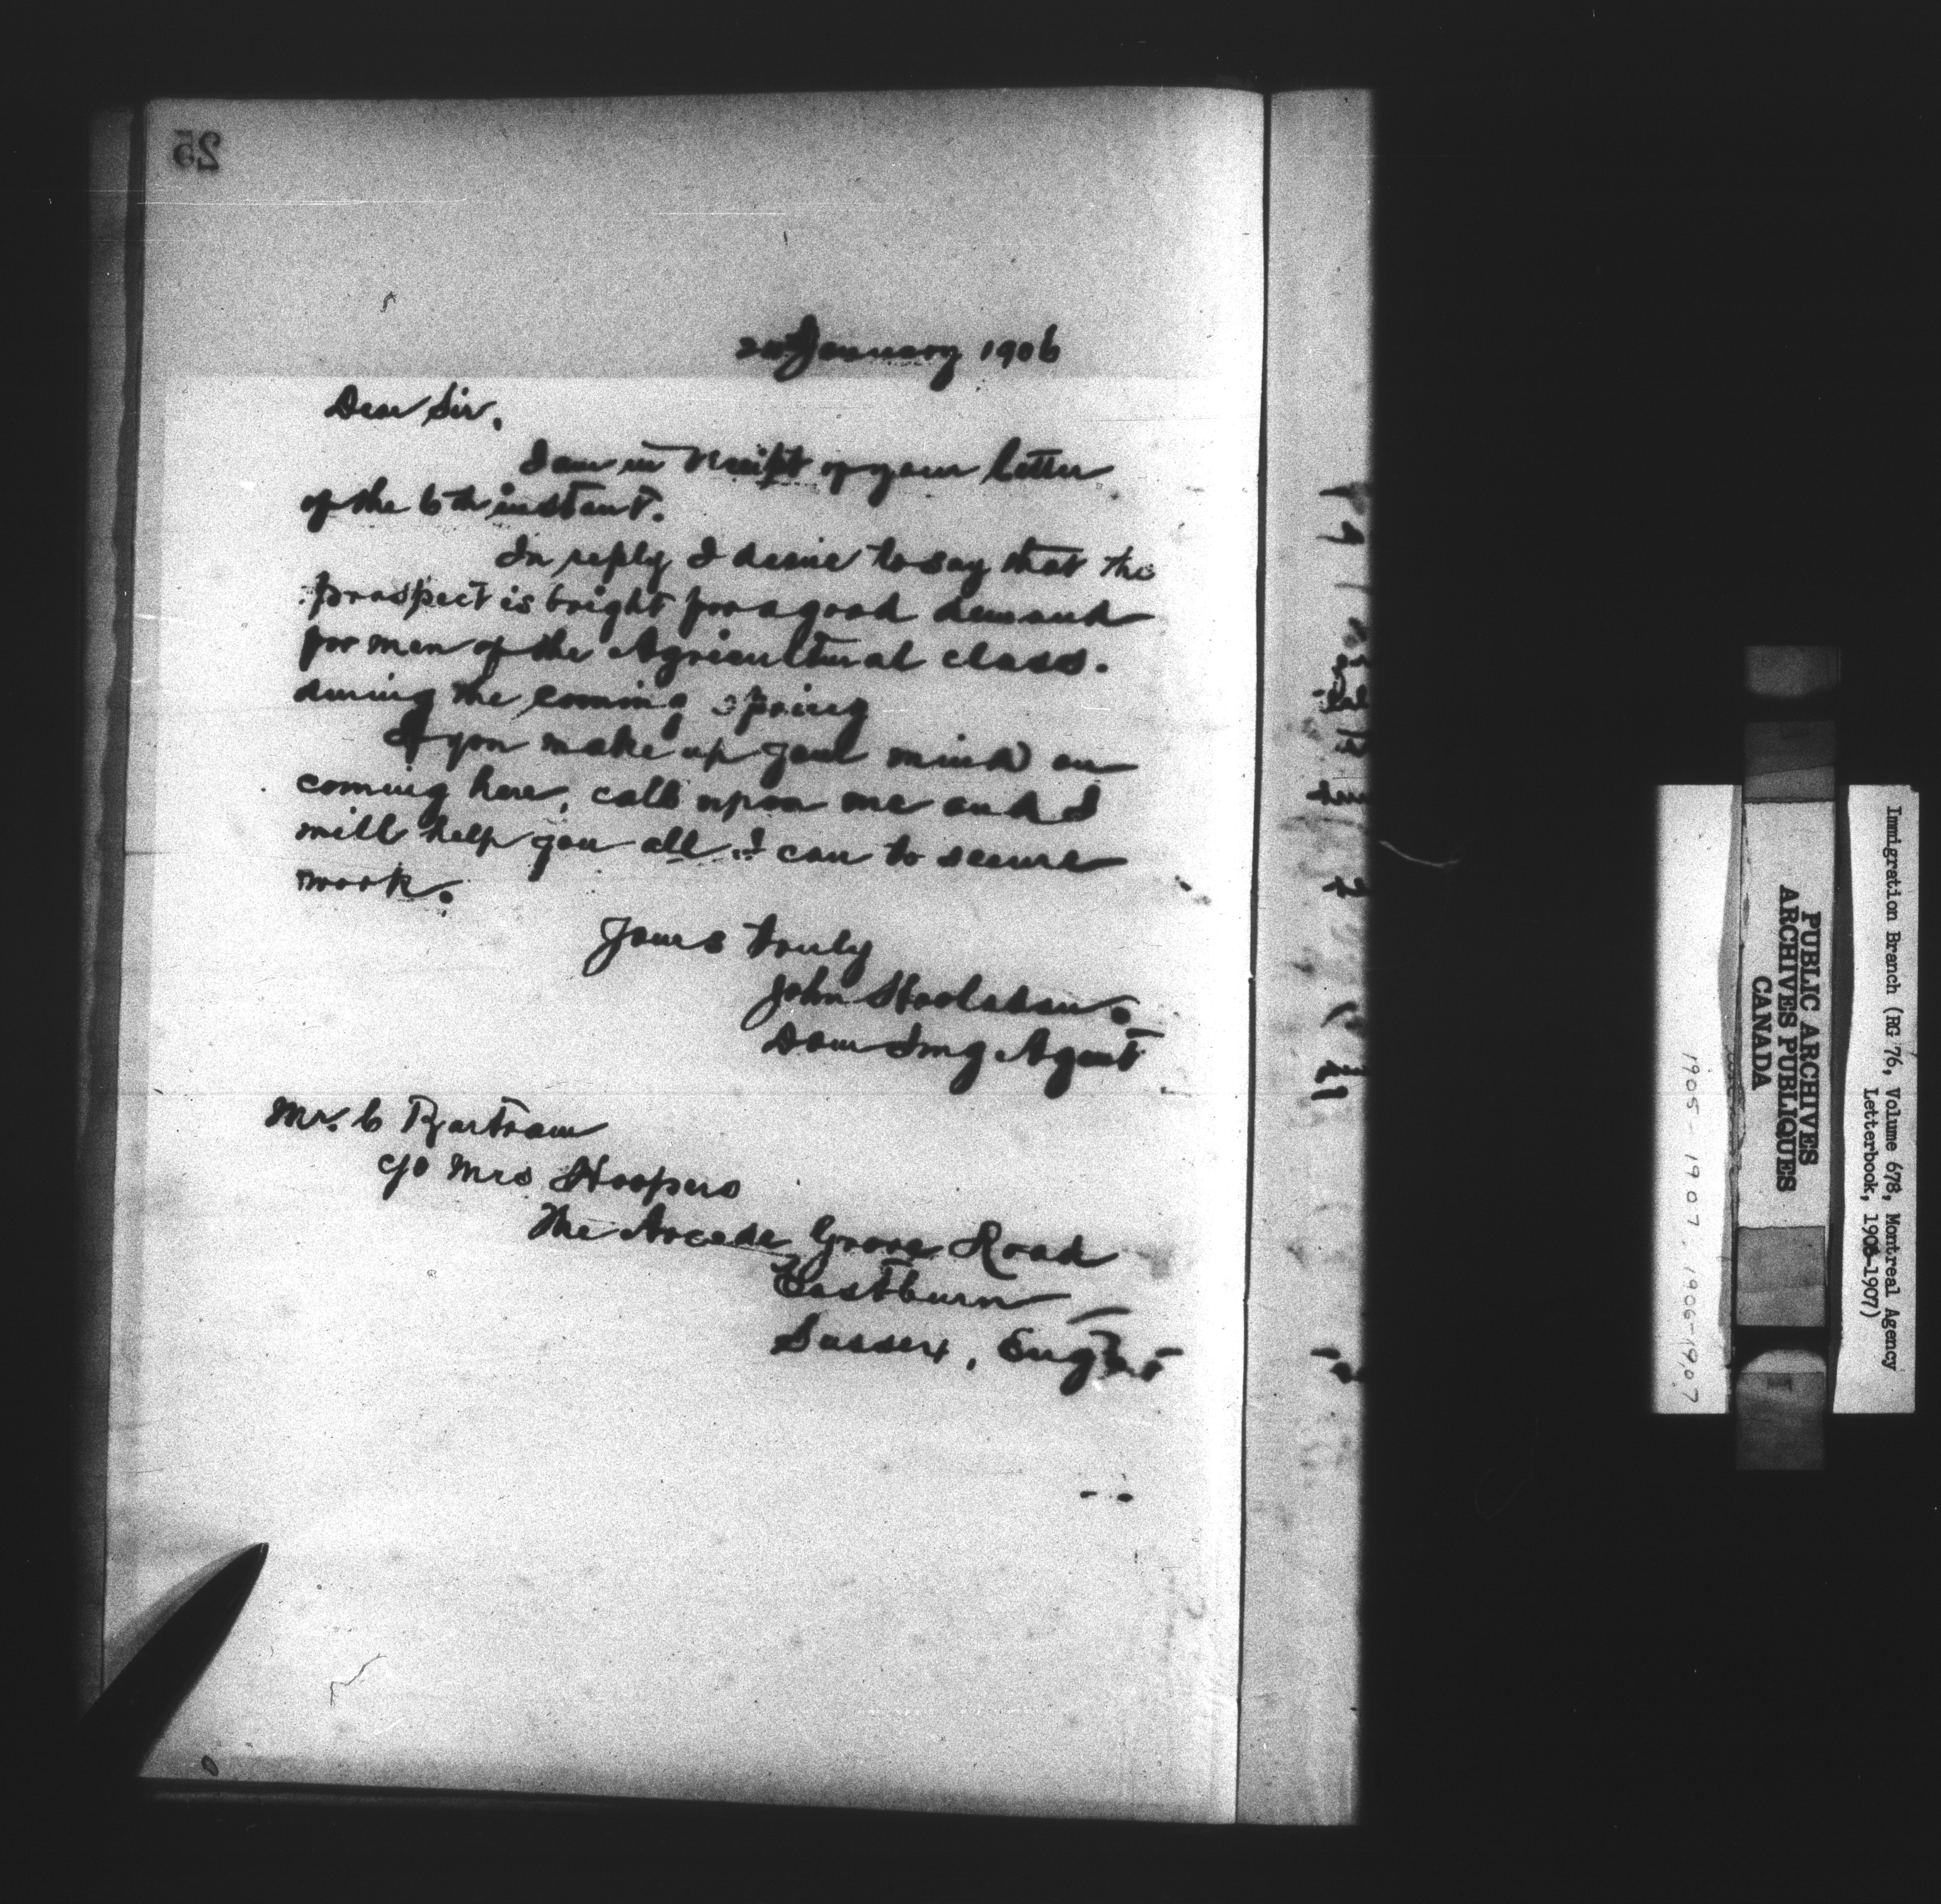 25
January 1906
Dear Sir,
I am in receipt of your letter
of the 6th instant.
In reply I desire to say that the
prospect is bright for a good demand
for men of the Agricultural class.
during the coming spring
If you make up your mind on
coming here, call upon me and I
will help you all I can to secure
work.
Yours truly
John Hoolahan
Dom Img Agent
Mr. C Bartram
c/o Mrs Hoopers
The Arcade Grove Road
Eastburn
Sussex,
Immigration Branch (RG 76, Volume 678, Montreal Agency
Letterbook, 1906-1907)
PUBLIC ARCHIVES
ARCHIVES PUBLIQUES
CANADA
1905-1907, 1906-1907